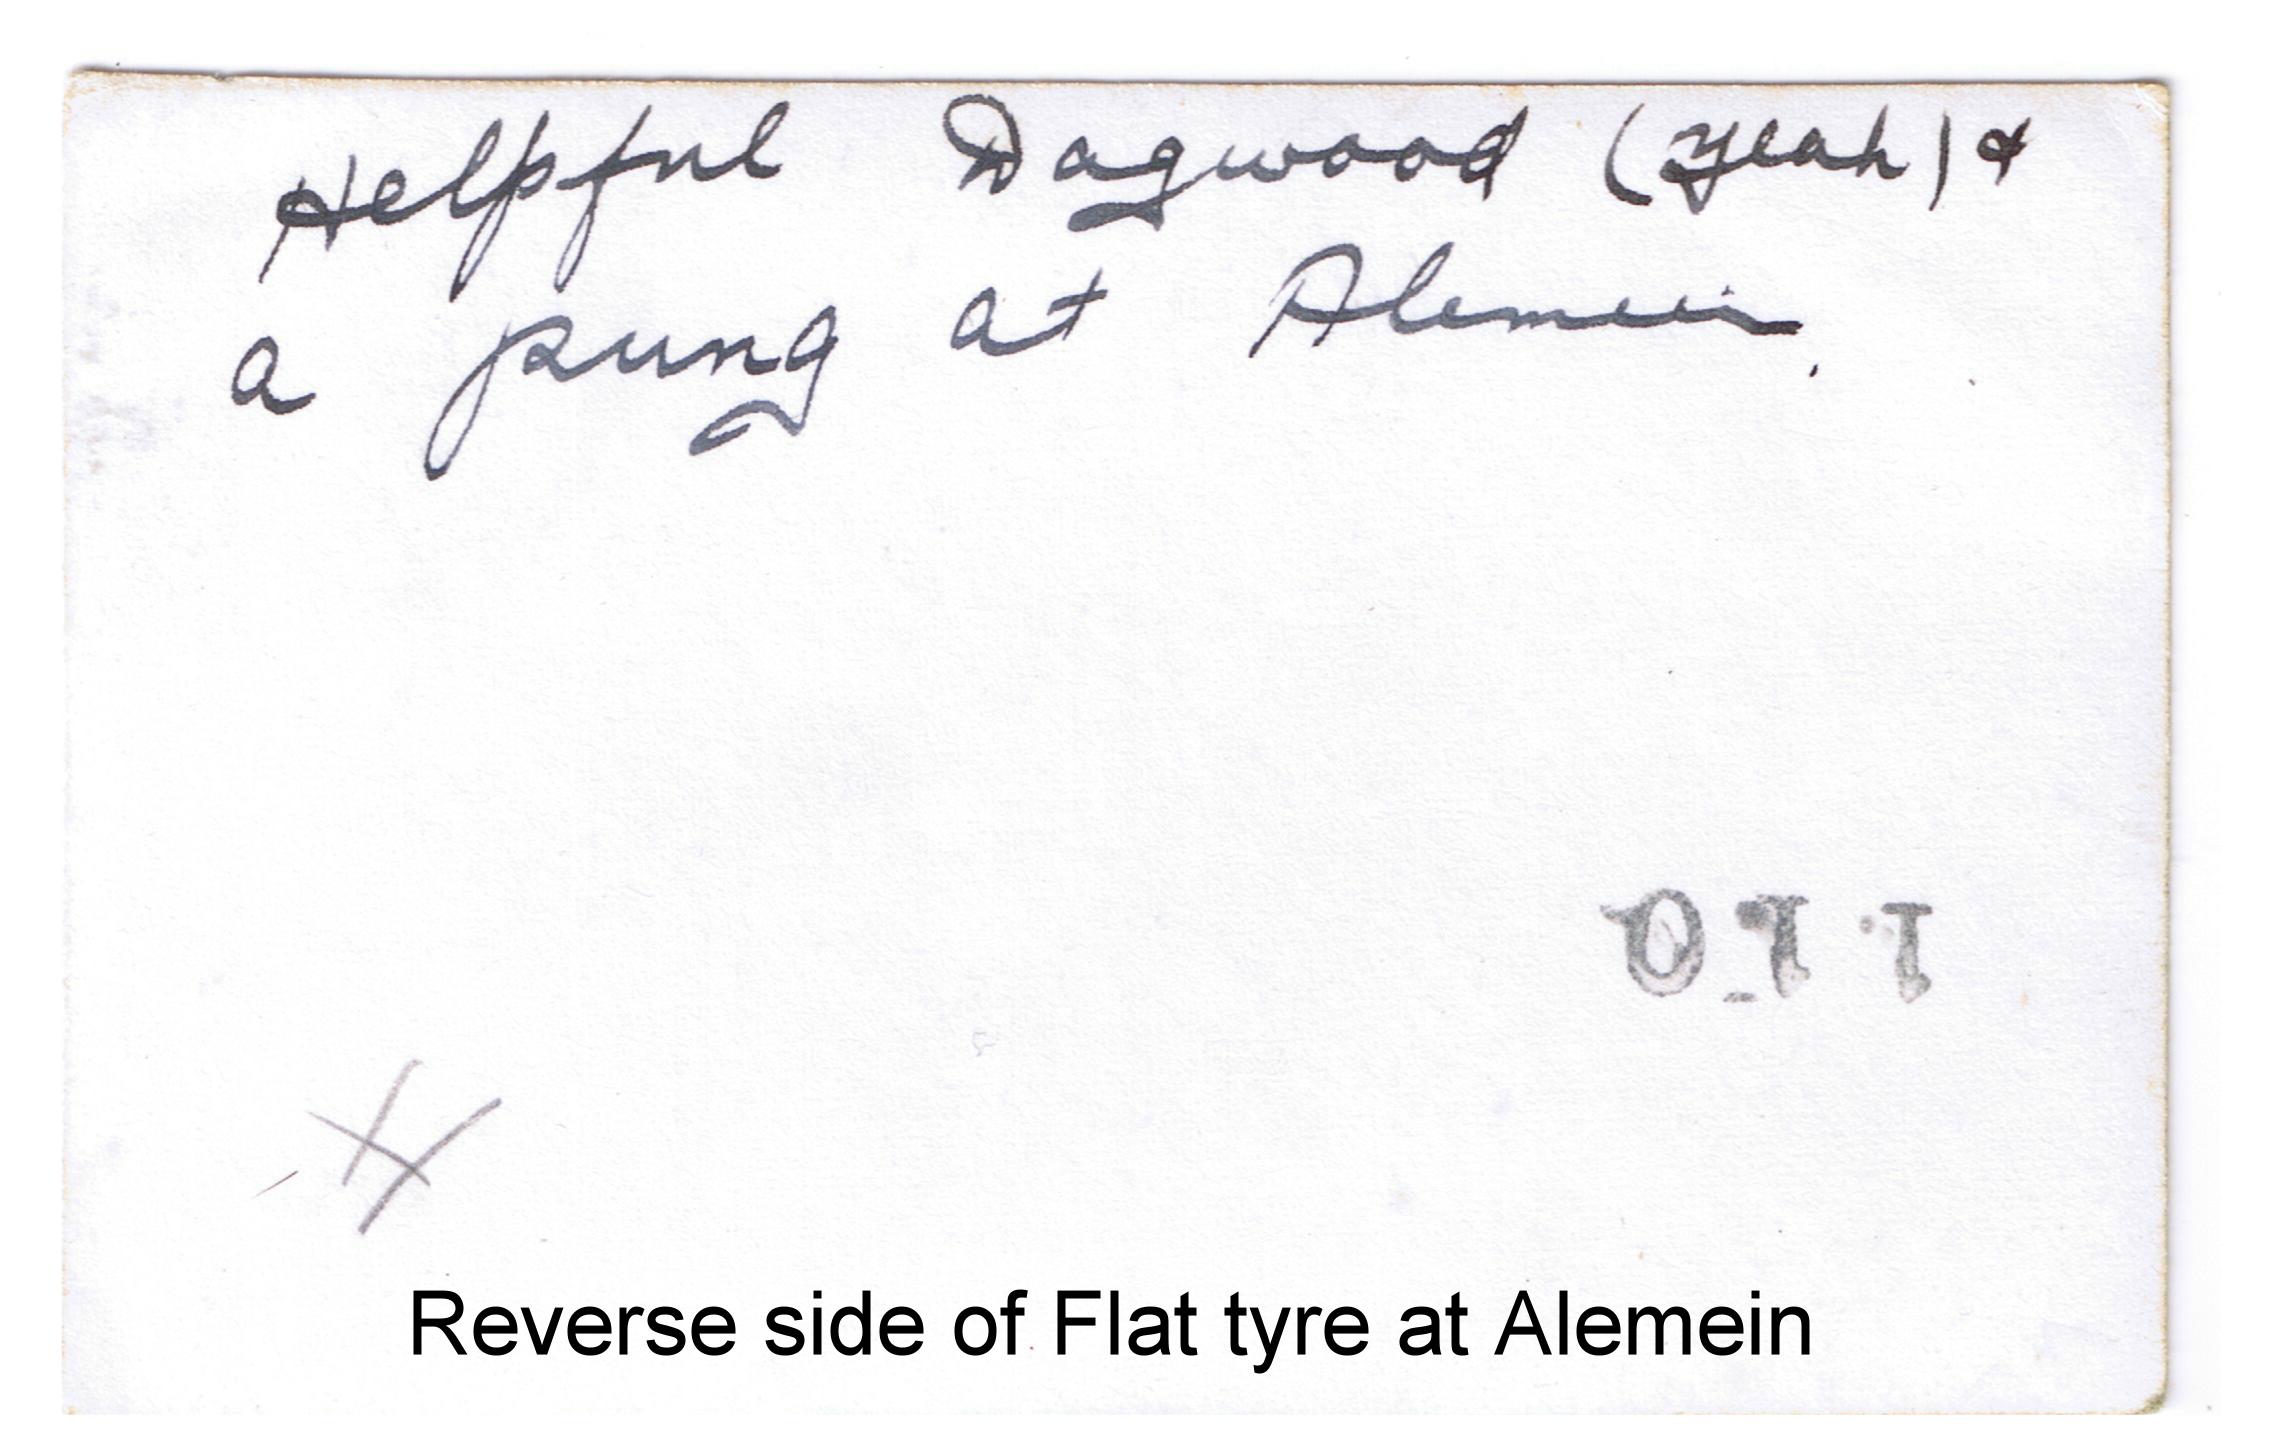 Helpful Dagwood (yeah) &
a pung at Alemein.
110
Reverse side of Flat tyre at Alemein